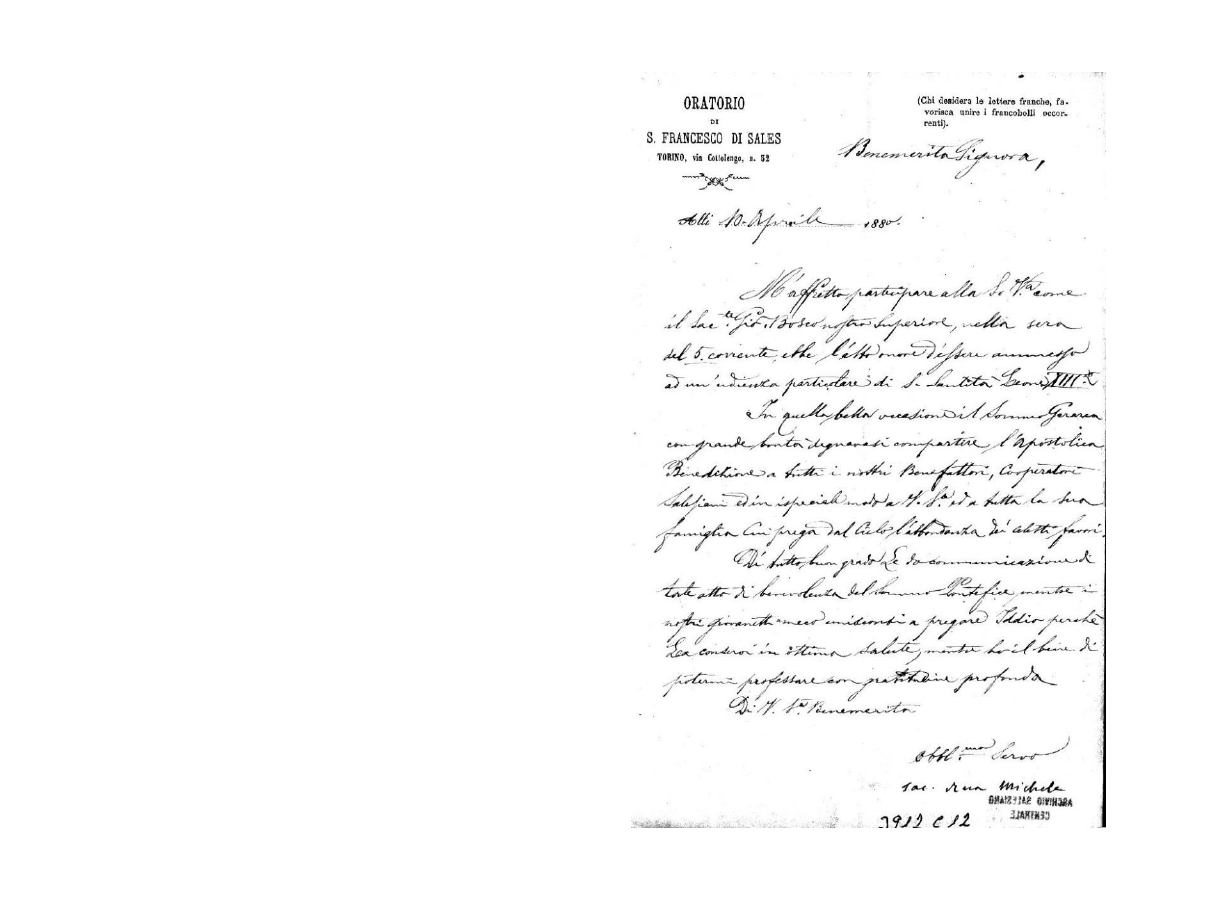 ORATORIO
DI
S. FRANCESCO DI SALES
TORINO, via Cottolengo, n. 32
(Chi desidera le lettere franche, fa-
vorisca unire i francobolli occor-
renti).
Benemerita Signora,
Alli 10 Aprile 1880.
M'affretto partecipare alla S. V.ra come
il Sac.te Gio. Bosco nostro Superiore, nella sera
del 5. corrente, ebbe l'alto onore d'essere ammesso
ad un'udienza particolare di S. Santità Leone XIII.
In quella bella occasione il Sommo Gerarca
con grande bontà degnavasi compartire l'Apostolica
Benedizione a tutti i nostri Benefattori, Cooperatori
Salesiani ed in ispecial modo a V. S.a ed a tutta la sua
famiglia cui prega dal Cielo l'abbondanza dei celesti favori.
Di tutto buon grado Le do communicazione di
tale atto di benevolenza del Sommo Pontefice mentre i
nostri giovanetti meco uniscono si a pregare Iddio perchè
La conservi in ottima salute, mentre ho il bene di
potermi professare con gratitudine profonda
Di V. S.a Benemerita
Obbl.mo Servo
sac. Rua Michele
ARCHIVIO SALESIANO
CENTRALE
3912 C 12